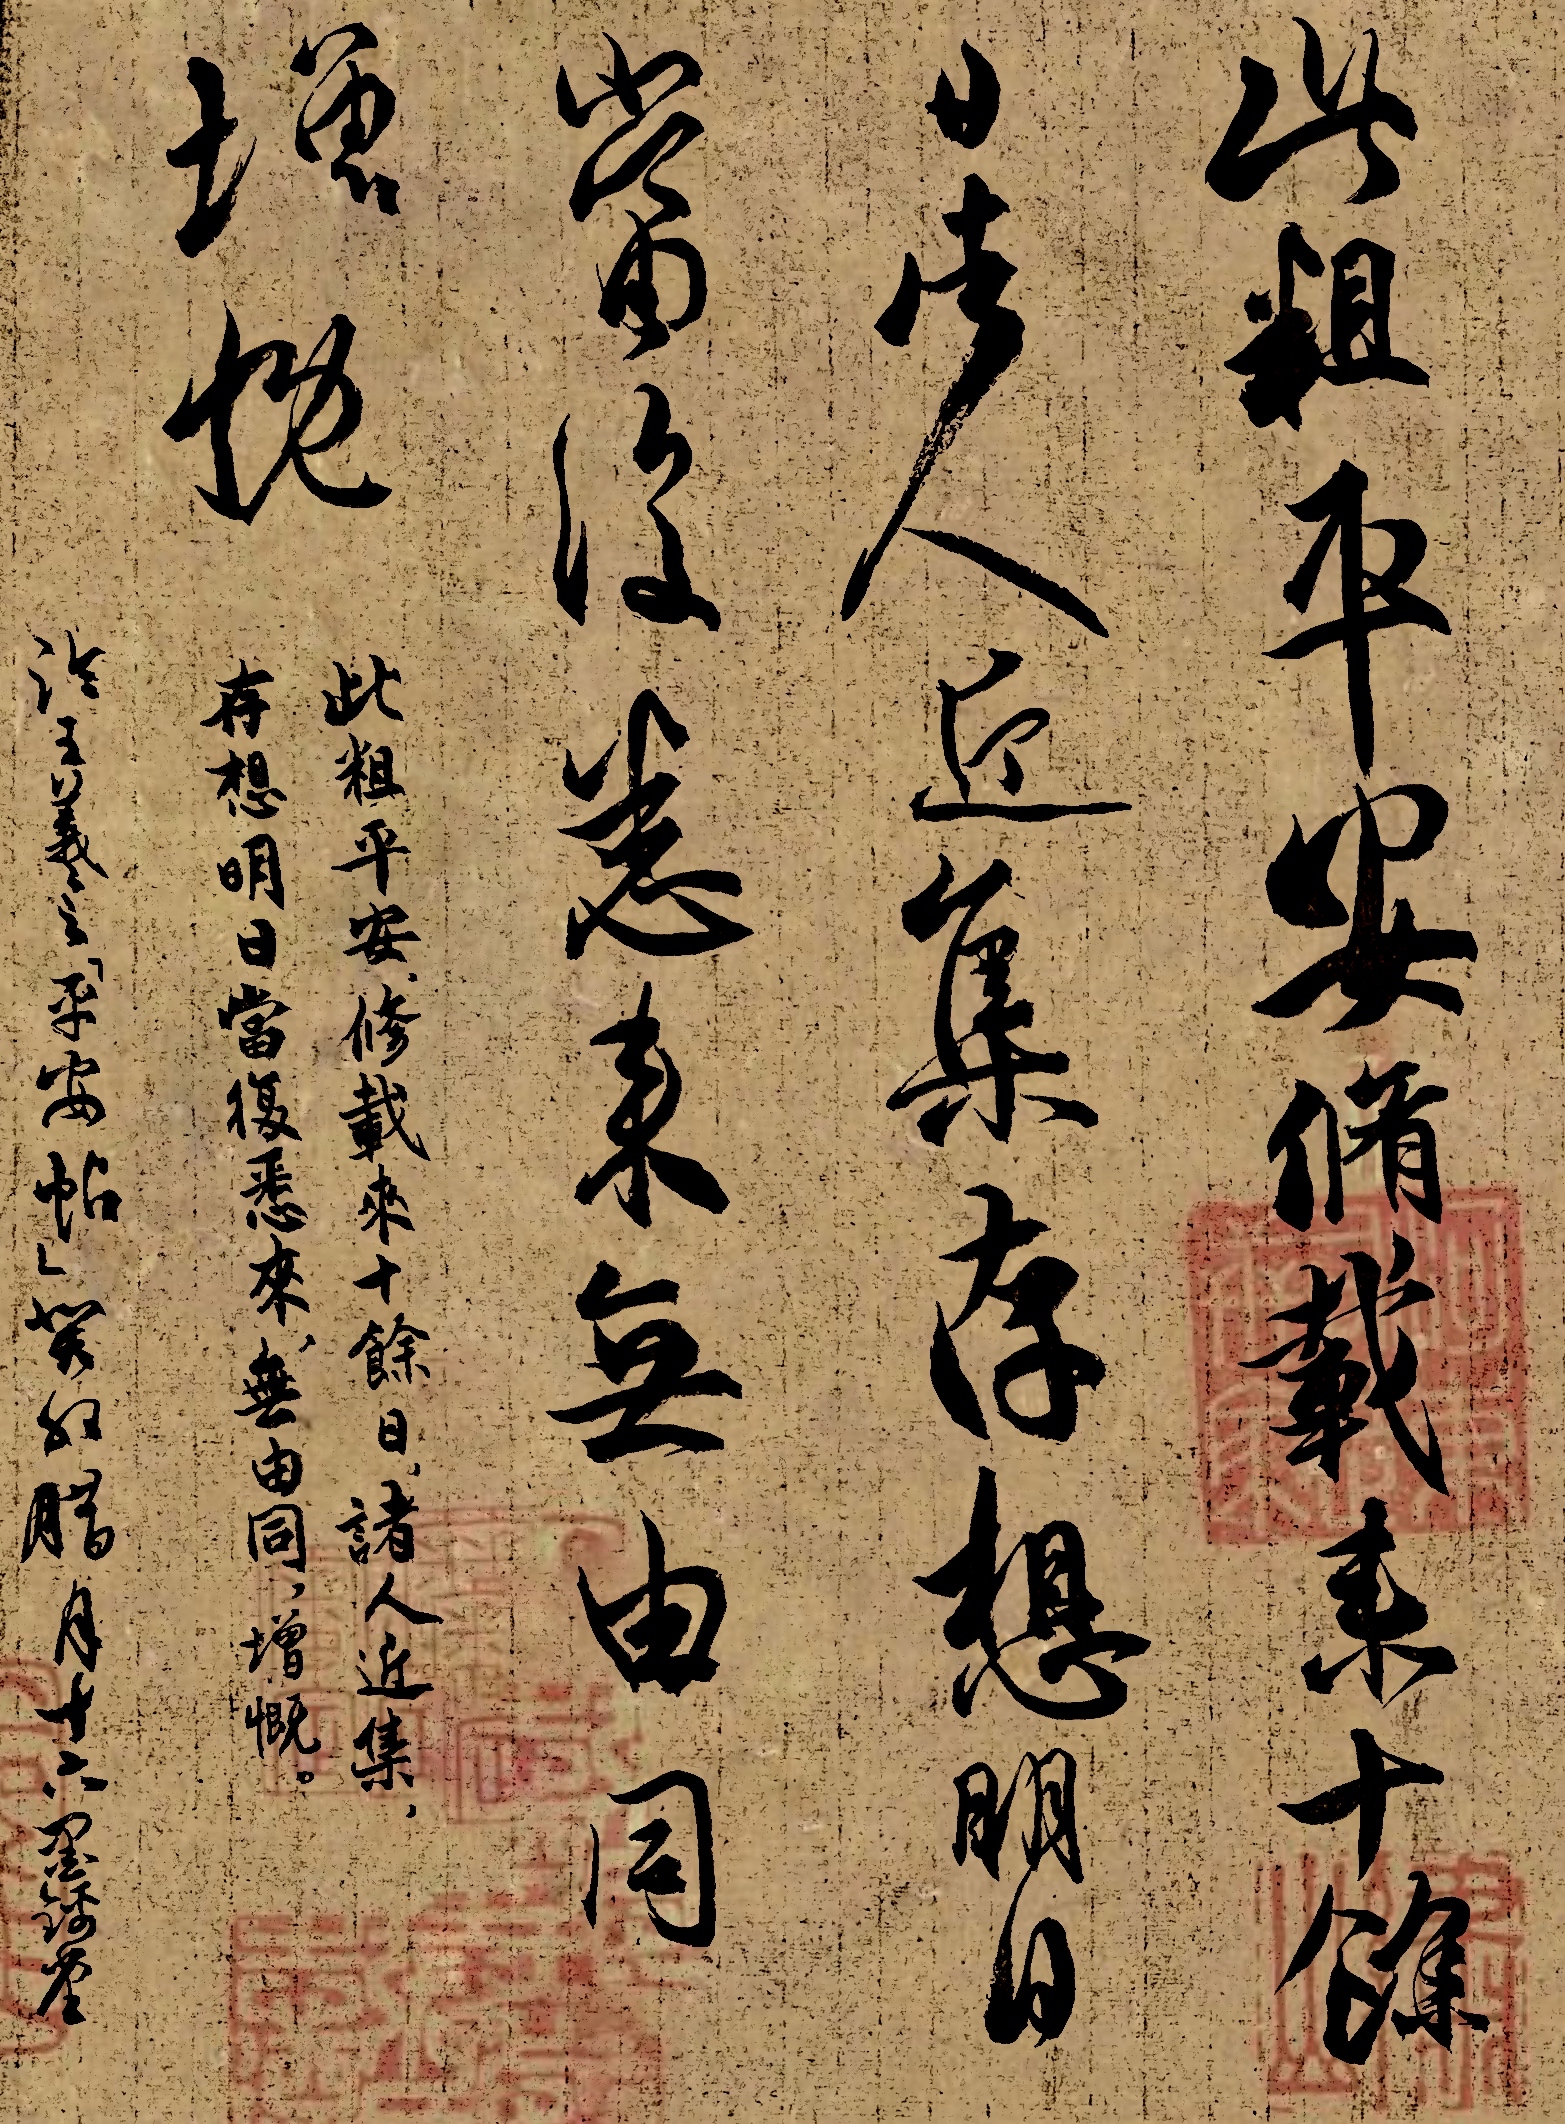 此粗平安脩載来十餘
日諸人近集存想明日
當復悉来無由同
增慨
此粗平安、修載來十餘日、諸人近集，
存想明日當復悉來、無由同，增慨。
臨王羲之「平安帖」癸卯腊月十六墨錡堂